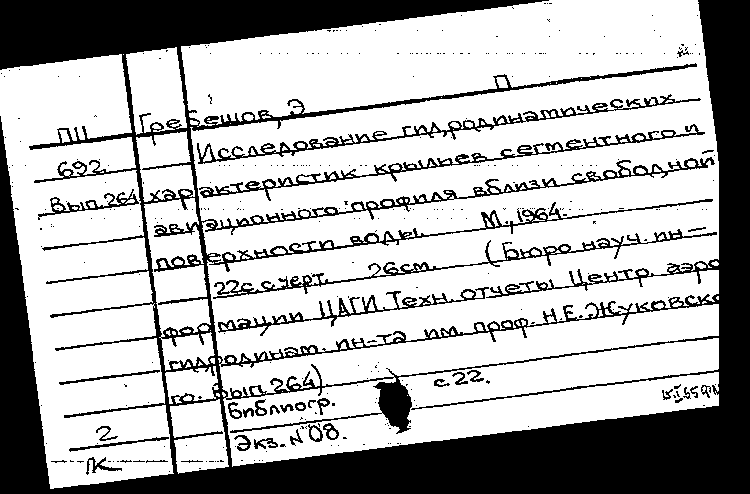 ПЦ Гребешов, Э П
692 Исследование гидродинатических
Вып.264 характеристик крыльев сегментного и
авиационного профиля вблизи свободной
поверхности воды. М., 1964.
22с. с черт. 26см. (Бюро науч. ин-
формации ЦАГИ. Техн. отчеты Центр. аэро
гидродинам. ин-та им. проф. Н.Е. Жуковско
го. Вып. 264)
Библиогр. с. 22.
2 Экз. №08.